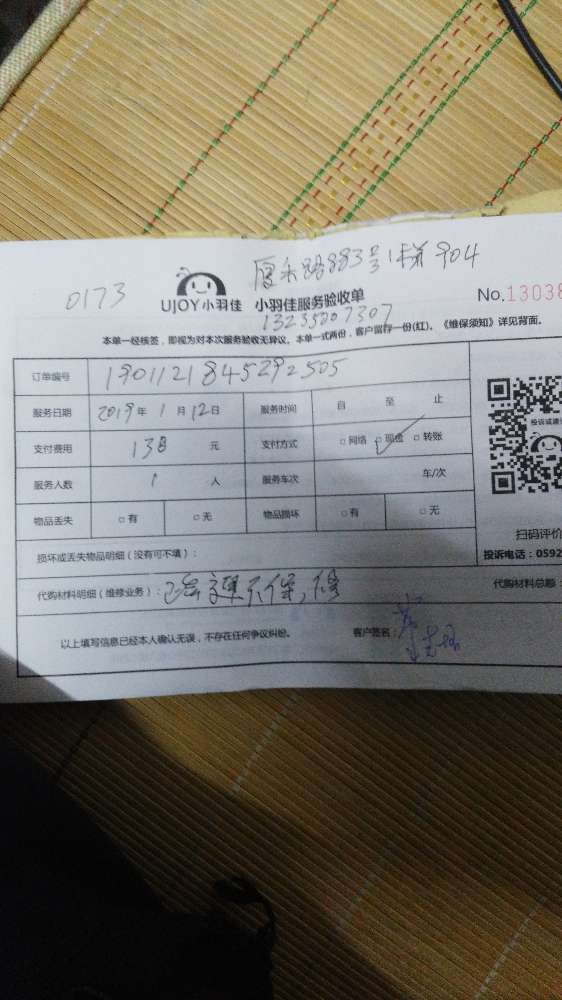 路883号1梯904
0173
UJOY小羽佳 小羽佳服务验收单
No.13038
13235007307
本单一经核签，即视为对本次服务验收无异议。本单一式两份，客户留存一份(红)。《维保须知》详见背面。
订单编号 1901121845292505
服务日期 2019年1月12日 服务时间 自 至 止
支付费用 138 元 支付方式 □网络 □现金 □转账
服务人数 1 人 服务车次 车/次
物品丢失 □有 □无 物品损坏 □有 □无
损坏或丢失物品明细（没有可不填）：
扫码评价
投诉电话：0592
代购材料明细（维修业务）： 不保，修
代购材料总额：
以上填写信息已经本人确认无误，不存在任何争议纠纷。 客户签名：